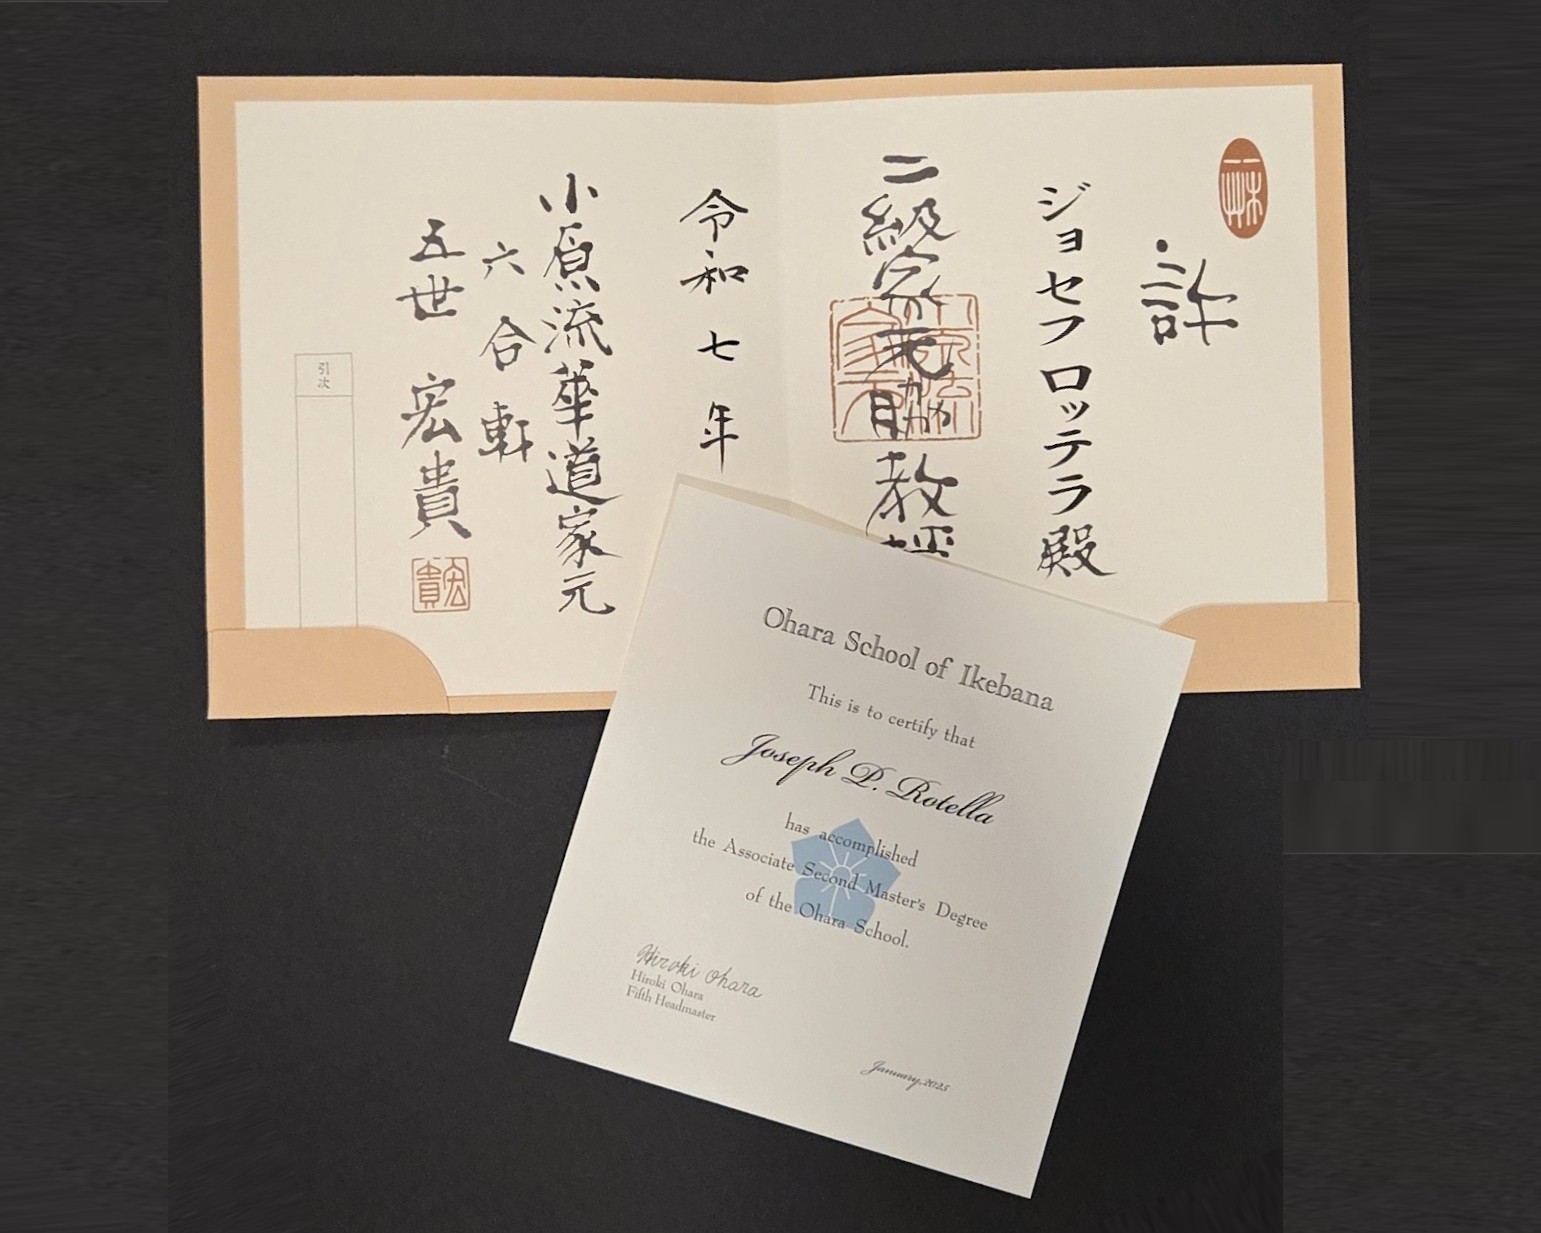 許
ジョセフ ロッテラ 殿
二級家元脇教授
令和七年
小原流華道家元
六合軒
五世 宏貴
宏貴
引次
Ohara School of Ikebana
This is to certify that
Joseph P. Rotella
has accomplished
the Associate Second Master's Degree
of the Ohara School.
Hiroki Ohara
Hiroki Ohara
Fifth Headmaster
January, 2025